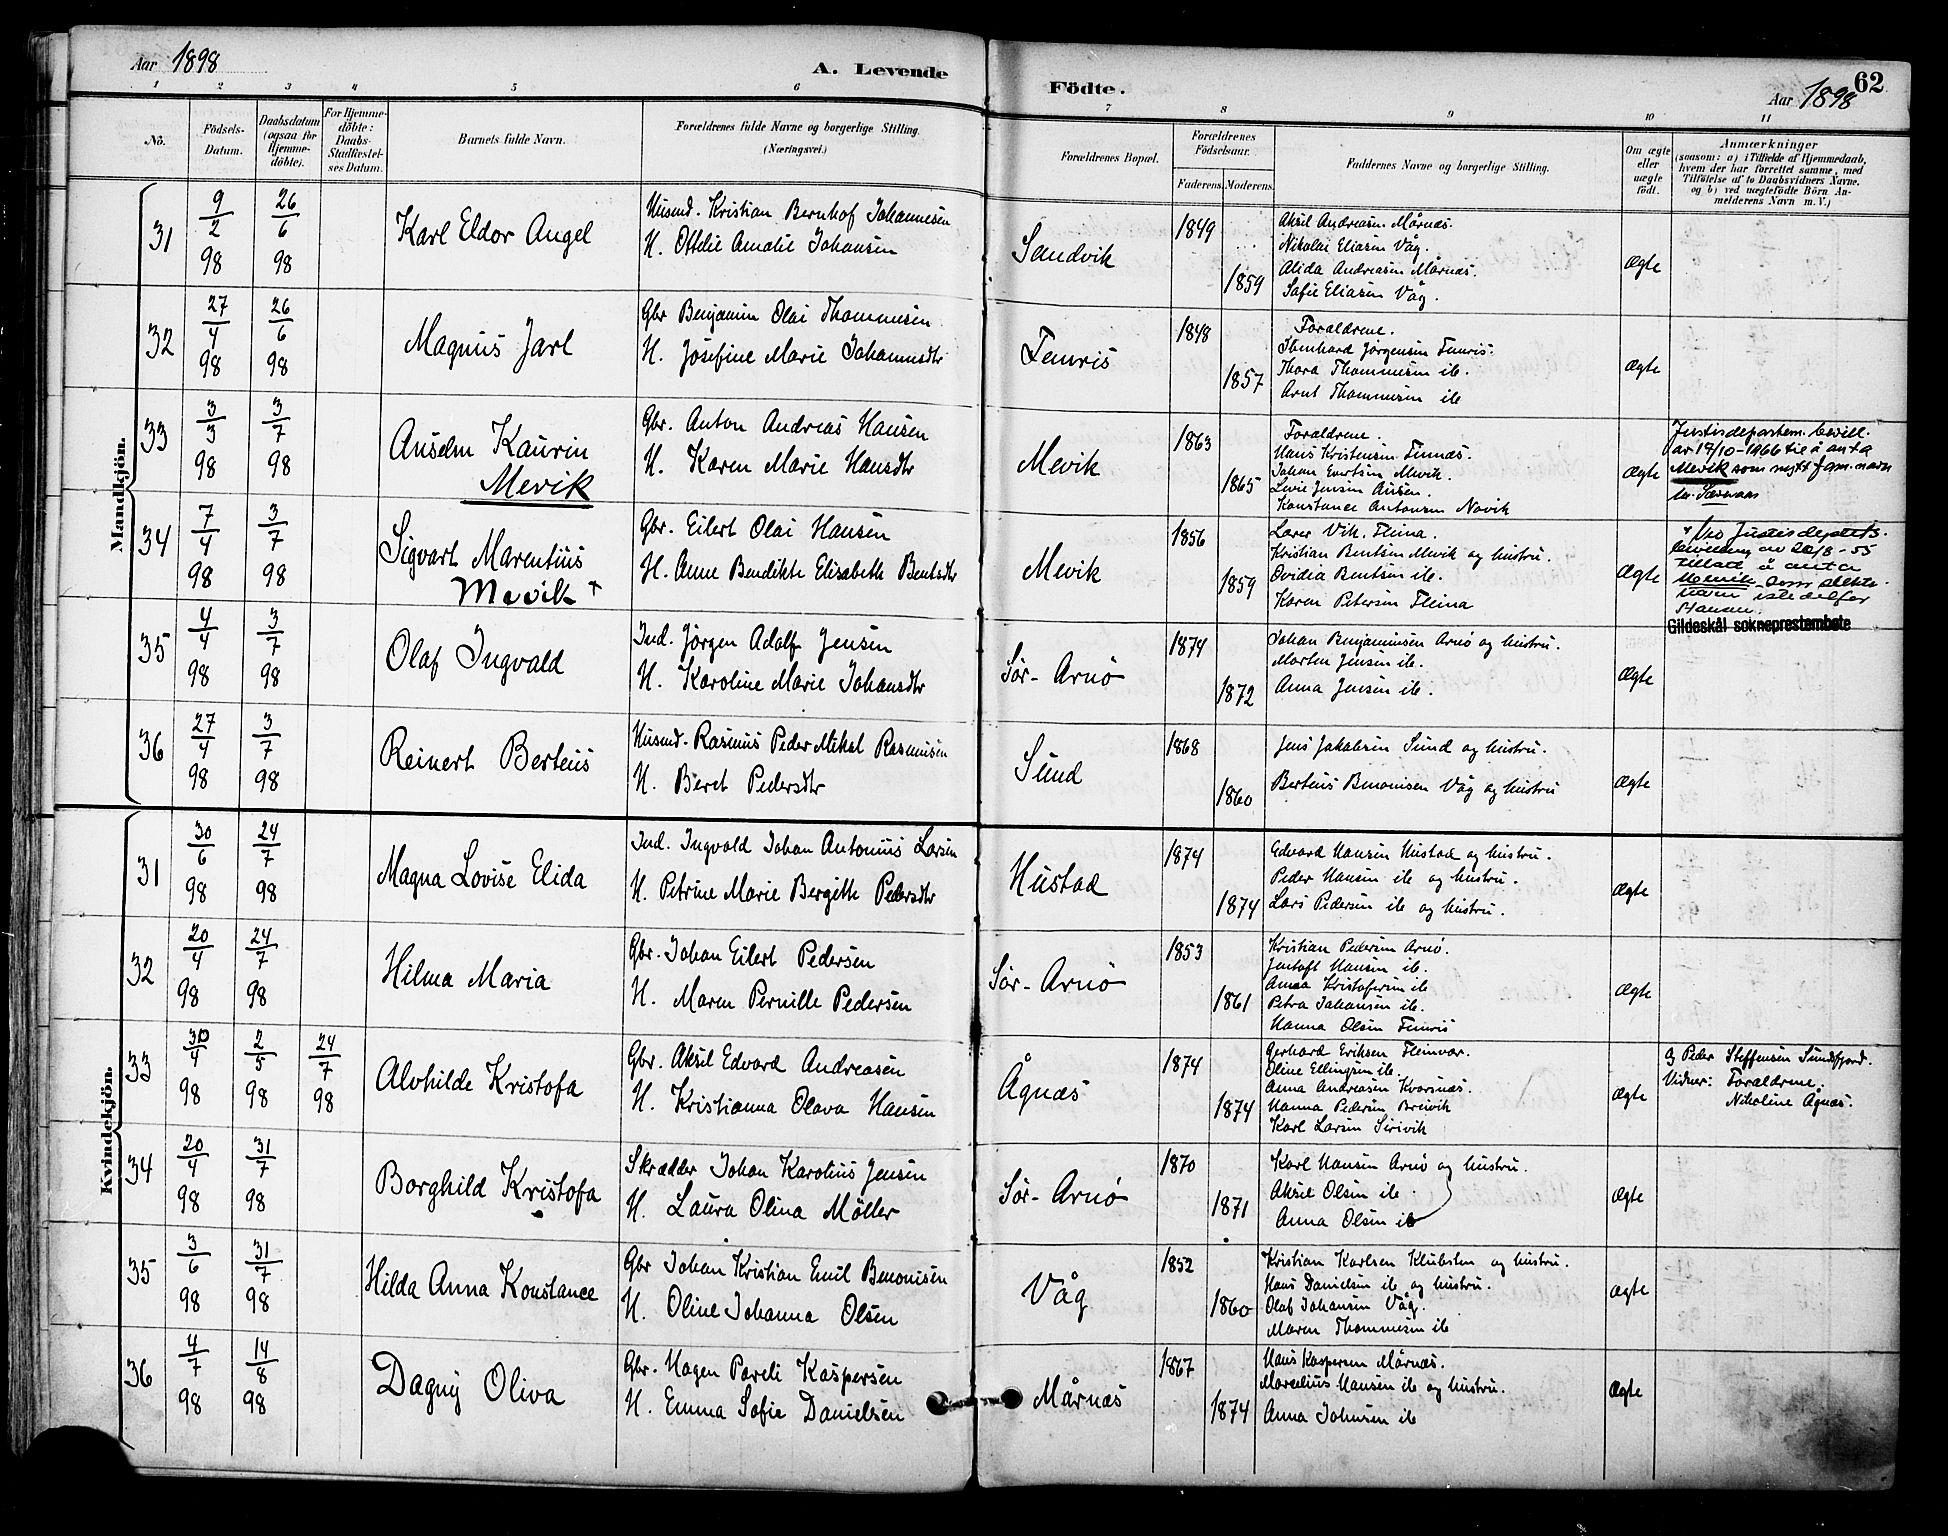 Aar 1898
A. Levende
Födte.
Aar 1898
62
1 2 3 4 5 6 7 8 9 10 11
No.
Födsels-Datum.
Daabsdatum (ogsaa for Hjemme-döbte).
For Hjemme-döbte: Daabs-Stadfæstel-ses Datum.
Barnets fulde Navn.
Forældrenes fulde Navne og borgerlige Stilling.
(Næringsvei.)
Forældrenes Bopæl.
Forældrenes Födselsaar.
Faderens. Moderens.
Faddernes Navne og borgerlige Stilling.
Om ægte eller uægte födt.
Anmærkninger
(saasom: a) i Tilfælde af Hjemmedaab,
hvem der har forrettet samme, med
Tilföielse af to Daabsvidners Navne.
og b) ved uægtefödte Börn An-
melderens Navn m. V.)
Mandkjön.
31 9/2 98 26/6 98 Karl Eldor Angel
Husmd. Kristian Bernhof Johannesen
H. Ottelie Amalie Johansen
Sandvik 1849 1859
Aksel Andreasen Mårnæs.
Nikolai Eliasen Våg.
Alida Andreasen Mårnæs.
Sofie Eliasen Våg.
Ægte
32 27/4 98 26/6 98 Magnus Jarl
Gbr Benjamin Olai Thommesen
H. Josefine Marie Johannsdtr
Fenris 1848 1857
Forældrene.
Jørgensen Fenris.
Thora Thommesen ib.
Arnt Thommesen ib
Ægte
33 3/3 98 3/7 98 Anselm Kaurin
Mevik
Gbr. Anton Andreas Hansen
H. Karen Marie Hansdtr
Mevik 1863 1865
Forældrene.
Hans Kristensen Finnæs.
Johan Evertsen Mevik.
Levie Jensen
Konstance Antonsen Novik
Ægte
Justisdepartem. bevill.
av 19/10-1966 til å anta
Mevik som nytt fam.navn
34 7/4 98 3/7 98 Sigvart Marentius
Mevik +
Gbr. Eilert Olai Hansen
H. Anne Bendikte Elisabeth Bentsdtr
Mevik 1856 1859
Lærer Vik. Fleina.
Kristian Bentsen Mevik og hustru.
Ovidia Bentsen ib.
Karen Petersen Fleina
Ægte
+ Ved Justisdeptets.
bevilling av 22/8-55
tillatt å anta
Mevik som slekts-
navn istedetfor
Hansen.
Gildeskål sokneprestembete
35 4/4 98 3/7 98 Olaf Ingvald
Ind. Jørgen Adolf Jensen
H. Karoline Marie Johansdtr
Sör-Arnö 1874 1872
Johan Benjaminsen Arnö og hustru.
Morten Jensen ib.
Anna Jensen ib.
Ægte
36 27/4 98 3/7 98 Reinert Berteus
Husmd. Rasmus Peder Mikal Rasmusen
H. Beret Pedersdtr
Sund 1868 1860
Jens Jakobsen Sund og hustru.
Berteus Benonisen Våg og hustru
Ægte
Kvindekjön.
31 30/6 98 24/7 98 Magna Lovise Elida
Ind. Ingvald Johan Antonius Larsen
H. Petrine Marie Bergitte Pedersdtr
Hustad 1874 1874
Edvard Hansen Hustad og hustru.
Peder Hansen ib og hustru.
Lars Pedersen ib og hustru.
Ægte
32 20/4 98 24/7 98 Hilma Maria
Gbr. Johan Eilert Pedersen
H. Maren Pernille Pedersen
Sör-Arnö 1853 1861
Kristian Pedersen Arnö.
Jentoft Hansen ib.
Anna Kristofersen ib
Petra Johansen ib.
Hanna Olsen Fenris
Ægte
33 30/4 98 2/5 98 24/7 98 Alvhilde Kristofa
Gbr. Aksel Edvard Andreasen
H. Kristianna Olava Hansen
Ågnæs 1874 1874
Gerhard Eriksen Fleinvær.
Oline Ellingsen ib.
Anna Andreasen Kvarsnæs.
Hanna Pedersen Breivik
Karl Larsen Serivik
Ægte
Og Peder Steffensen Sundsfjord.
Vidner: Forældrene.
Nikoline Ågnæs.
34 20/4 98 31/7 98 Borghild Kristofa
Skrædder Johan Karolius Jensen
H. Laura Olina Möller
Sör-Arnö 1870 1871
Karl Hansen Arnö og hustru.
Aksel Olsen ib.
Anna Olsen ib
Ægte
35 3/6 98 31/7 98 Hilda Anna Konstance
Gbr Johan Kristian Emil Benonisen
H. Oline Johanna Olsen
Våg 1852 1860
Kristian Karlsen Klubsten og hustru.
Hans Danielsen ib og hustru.
Olaf Johansen Våg.
Maren Thommesen ib
Ægte
36 4/7 98 14/8 98 Dagny Oliva
Gbr. Hagen Pareli Kaspersen
H. Emma Sofie Danielsen
Mårnæs 1867 1874
Hans Kaspersen Mårnæs.
Marselius Hansen ib og hustru.
Anna Johnsen ib
Ægte